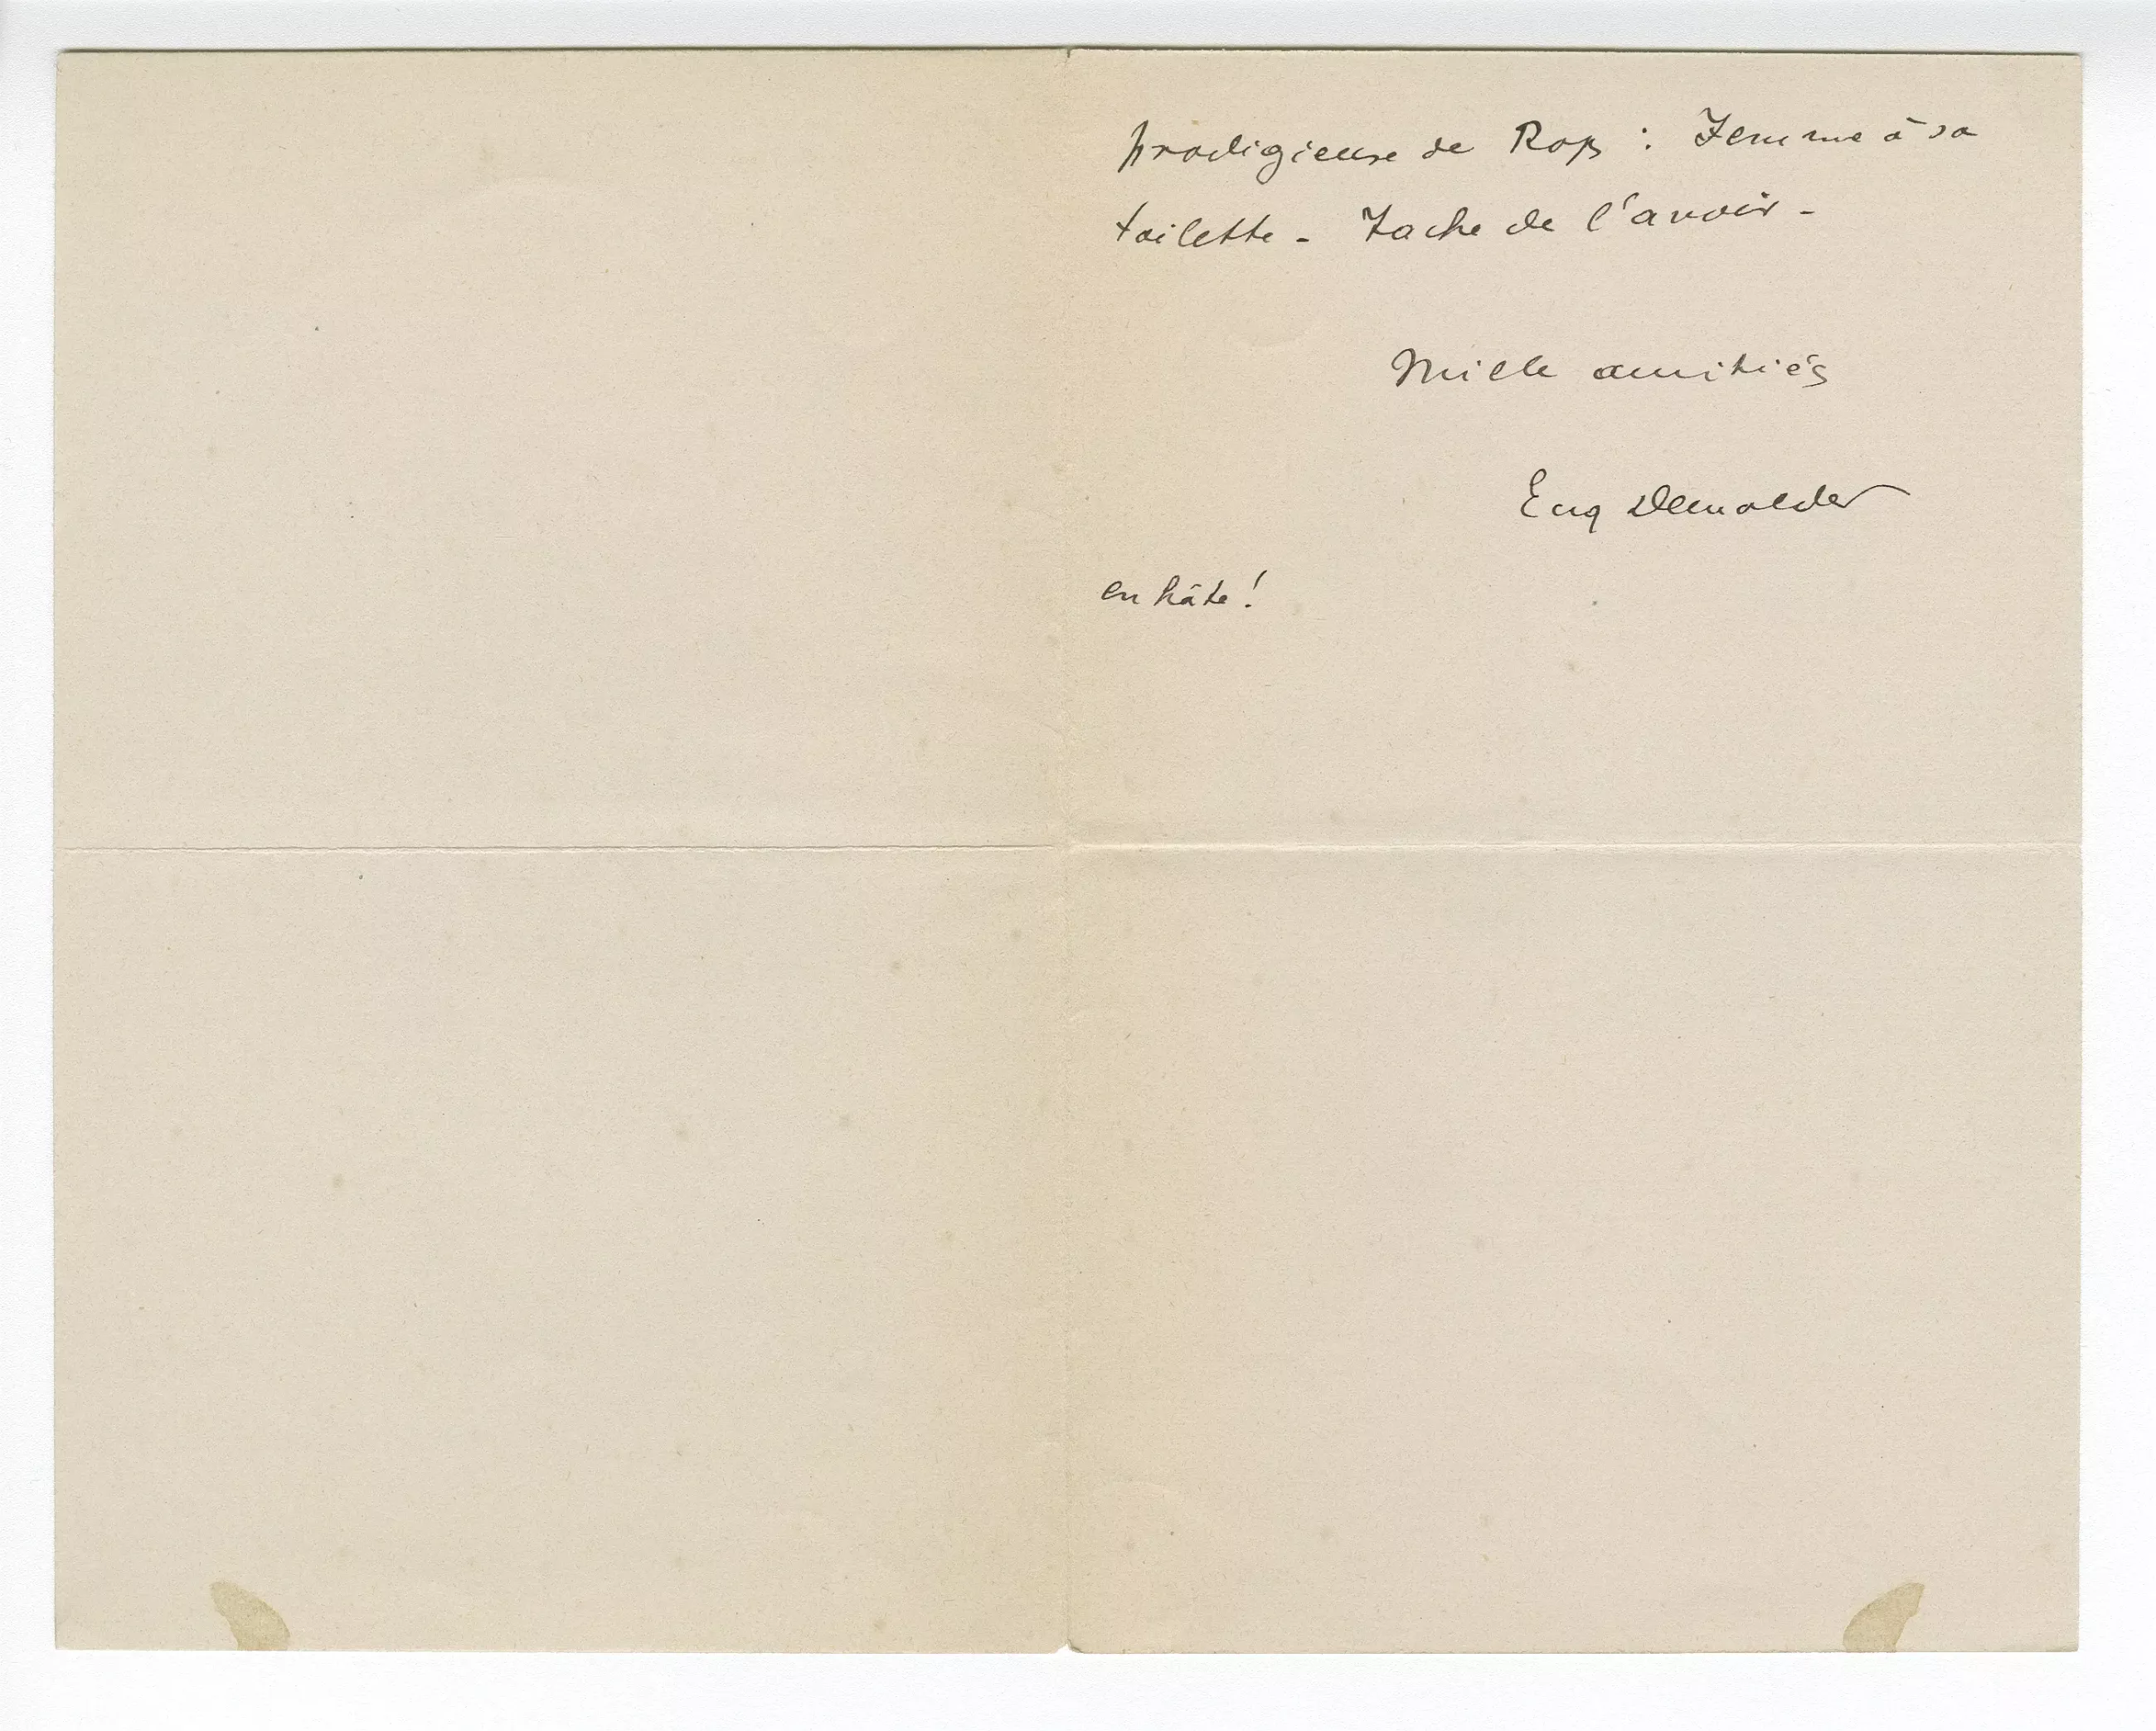 prodigieuse de Rops : Femme à sa
toilette - Tache de l'avoir -
Mille amitiés
Eug Demolder
en hâte !